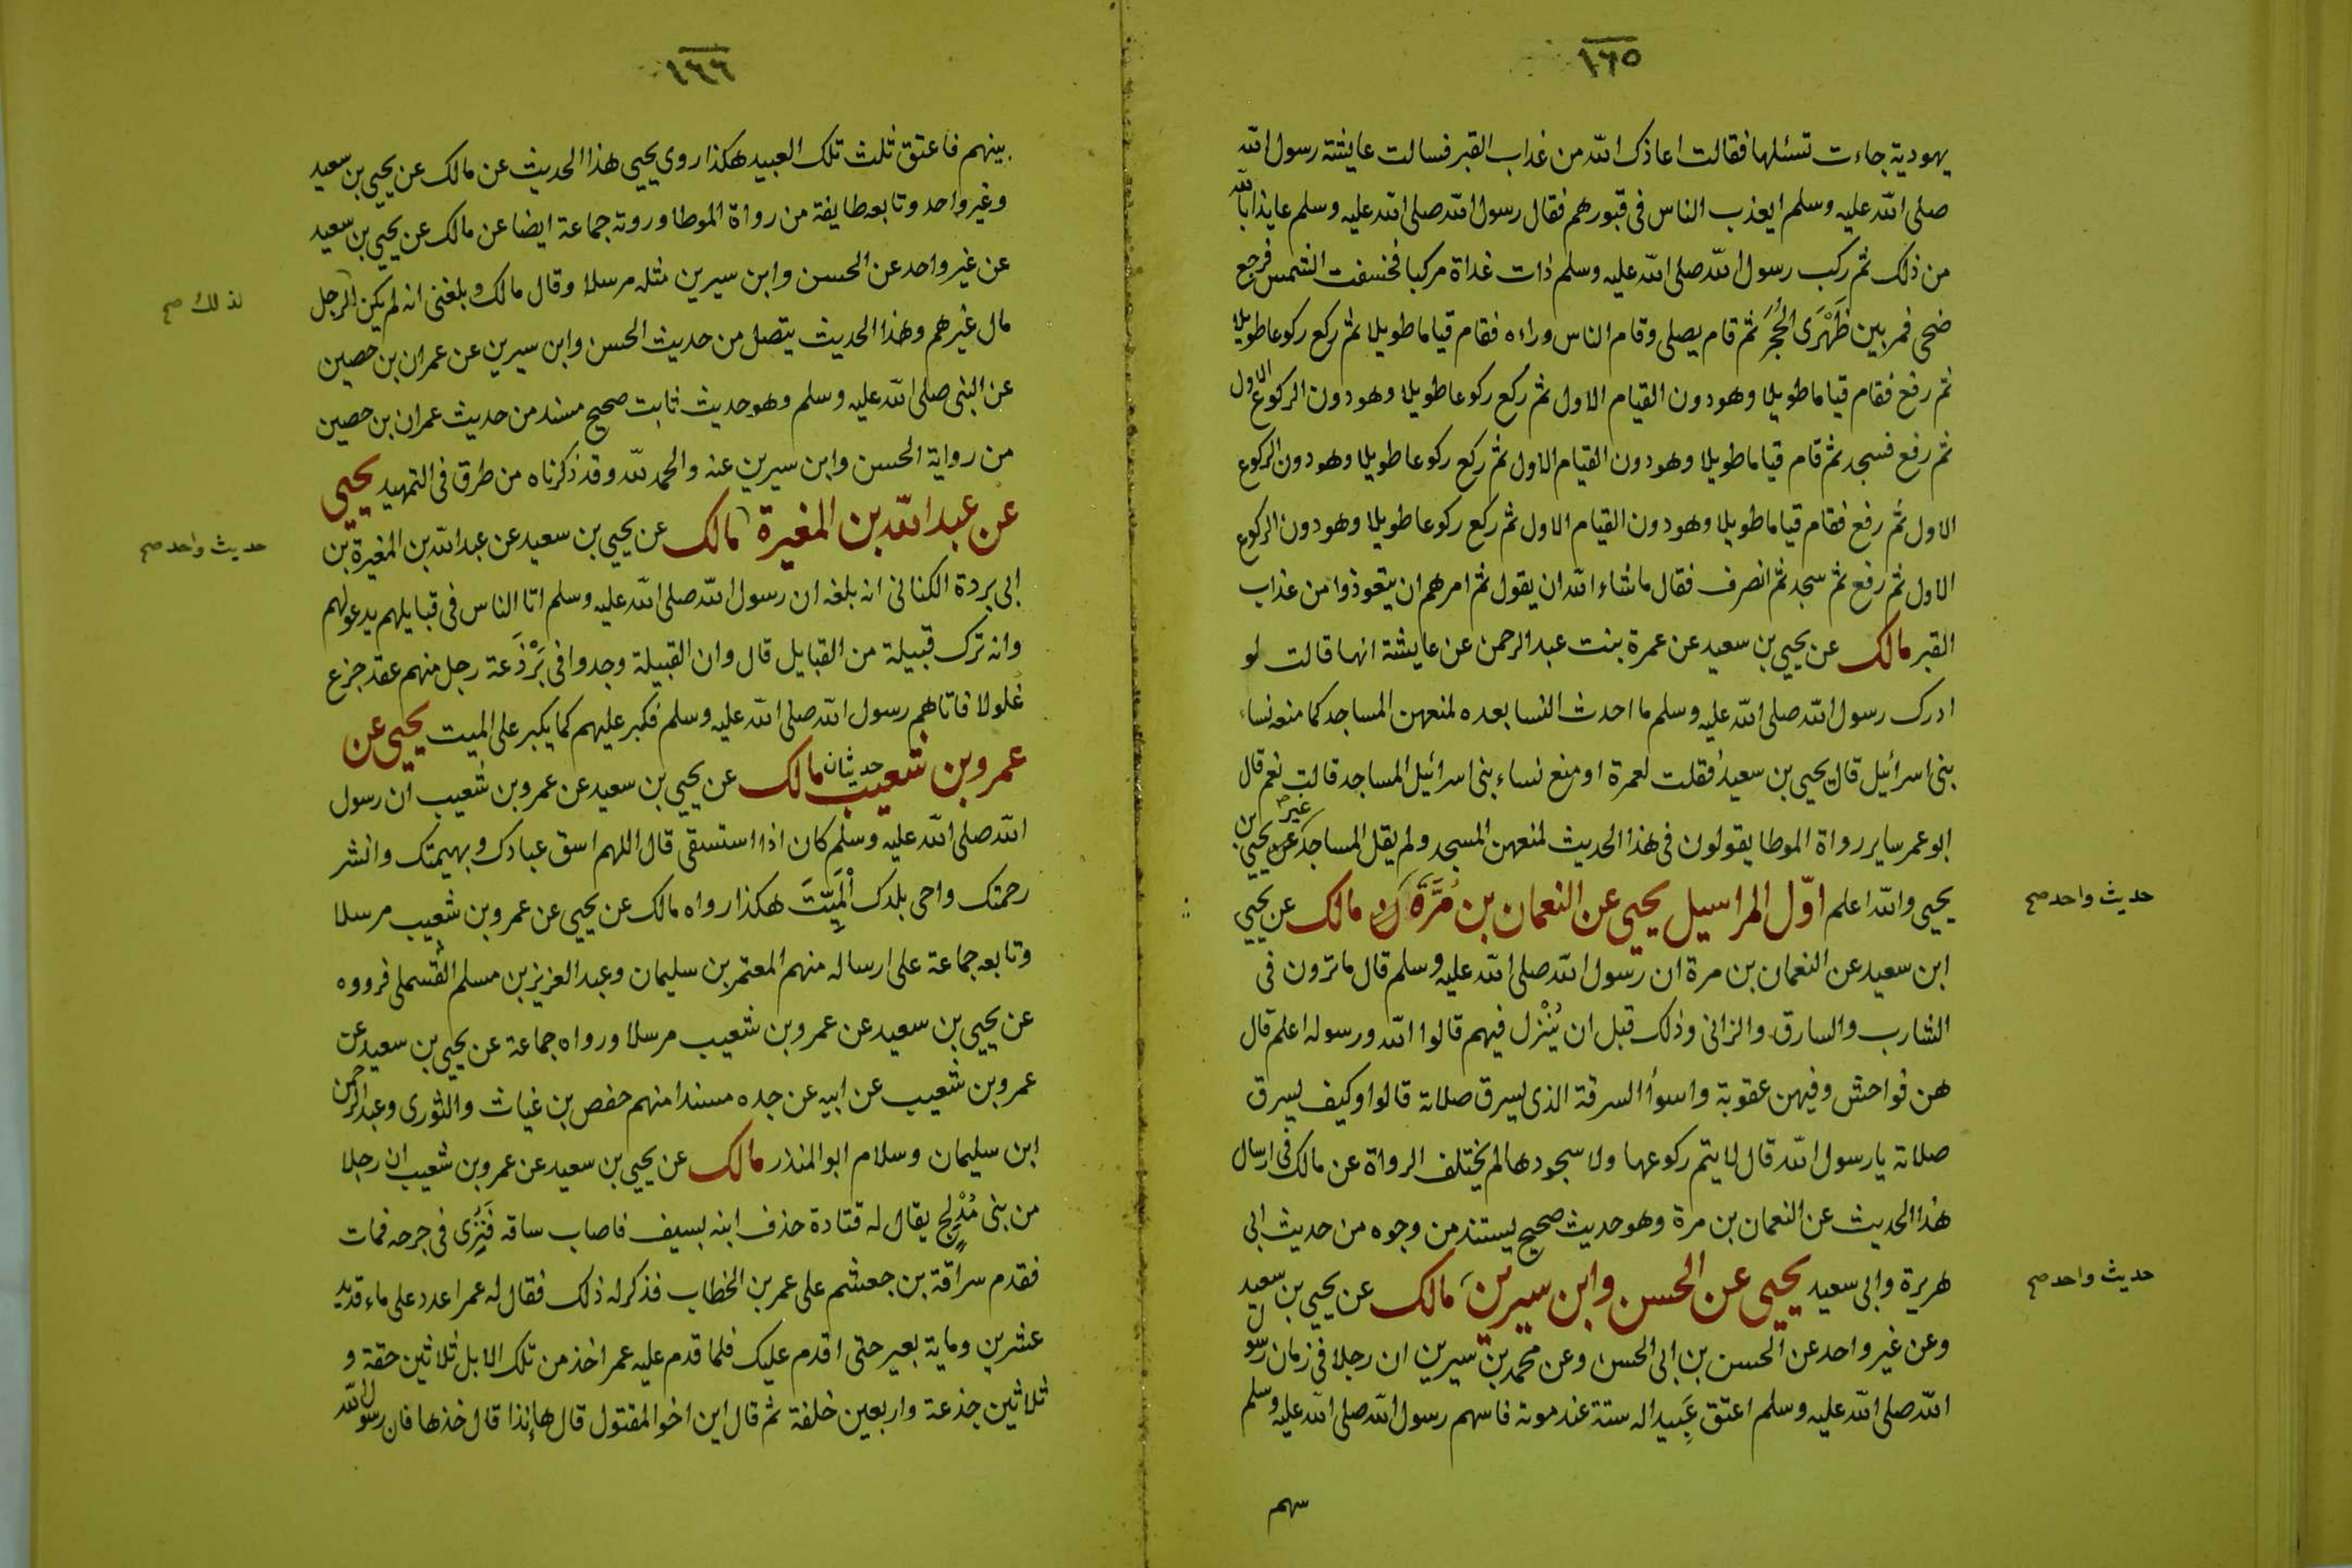 ١٦٥
يهودية جاءت تسئلها فقالت اعاذك الله من عذاب القبر فسالت عايشة رسول الله
صلى الله عليه وسلم ايعذب الناس فى قبورهم فقال رسول الله صلى الله عليه وسلم عايذا بالله
من ذلك ثم ركب رسول الله صلى الله عليه وسلم ذات غداة مركبا فخسفت الشمس فرجع
ضحى فمر بين ظَهْرَى الحُجَر ثم قام يصلى وقام الناس وراءه فقام قياما طويلا ثم ركع ركوعا طويلا
ثم رفع فقام قياما طويلا وهو دون القيام الاول ثم ركع ركوعا طويلا وهو دون الركوع الاول
ثم رفع فسجد ثم قام قياما طويلا وهو دون القيام الاول ثم ركع ركوعا طويلا وهو دون الركوع
الاول ثم رفع فقام قياما طويلا وهو دون القيام الاول ثم ركع ركوعا طويلا وهو دون الركوع
الاول ثم رفع ثم سجد ثم انصرف فقال ما شاء الله ان يقول ثم امرهم ان يتعوذوا من عذاب
القبر مالك عن يحيى بن سعيد عن عمرة بنت عبد الرحمن عن عايشة انها قالت لو
ادرك رسول الله صلى الله عليه وسلم ما احدث النسا بعده لمنعهن المساجد كما منعه نساء
بنى اسرائيل قال يحيى بن سعيد فقلت لعمرة او منع نساء بنى اسرائيل المساجد قالت نعم قال
ابو عمر ساير رواة الموطا يقولون فى هذا الحديث لمنعهن المسجد ولم يقل المساجد غير يحيى بن
يحيى والله اعلم اوّل المراسيل يحيى عن النعمان بن مُرَّة مالك عن يحيى
حديث واحد صح
ابن سعيد عن النعمان بن مرة ان رسول الله صلى الله عليه وسلم قال ما ترون فى
الشارب والسارق والزانى وذلك قبل ان يُنْزل فيهم قالوا الله ورسوله اعلم قال
هن فواحش وفيهن عقوبة واسوأ السرقة الذى يسرق صلاته قالوا وكيف يسرق
صلاته يا رسول الله قال لا يتم ركوعها ولا سجودها لم يختلف الرواة عن مالك فى ارسال
هذا الحديث عن النعمان بن مرة وهو حديث صحيح يستند من وجوه من حديث ابى
هريرة وابى سعيد يحيى عن الحسن وابن سيرين مالك عن يحيى بن سعيد
حديث واحد صح
وعن غير واحد عن الحسن بن ابى الحسن وعن محمد بن سيرين ان رجلا فى زمان رسول
الله صلى الله عليه وسلم اعتق عَبيدا له ستة عند موته فاسهم رسول الله صلى الله عليه وسلم
سهم
١٦٦
بينهم فاعتق ثلث تلك العبيد هكذا روى يحيى هذا الحديث عن مالك عن يحيى بن سعيد
وغير واحد وتابعه طايفة من رواة الموطا وروته جماعة ايضا عن مالك عن يحيى بن سعيد
عن غير واحد عن الحسن وابن سيرين مثله مرسلا وقال مالك وبلغنى انه لم يكن الرجل
لذلك صح
مال غيرهم وهذا الحديث يتصل من حديث الحسن وابن سيرين عن عمران بن حصين
عن النبى صلى الله عليه وسلم وهو حديث ثابت صحيح مسند من حديث عمران بن حصين
من رواية الحسن وابن سيرين عنه والحمد لله وقد ذكرناه من طرق فى التمهيد يحيى
عن عبد الله بن المغيرة مالك عن يحيى بن سعيد عن عبد الله بن المغيرة بن
حديث واحد صح
ابى بردة الكنانى انه بلغه ان رسول الله صلى الله عليه وسلم اتا الناس فى قبايلهم يدعو لهم
وانه ترك قبيلة من القبايل قال وان القبيلة وجدوا فى بَرْذَعة رجل منهم عقد جزع
غلولا فاتاهم رسول الله صلى الله عليه وسلم فكبر عليهم كما يكبر على الميت يحيى عن
عمرو بن شعيب حديثان مالك عن يحيى بن سعيد عن عمرو بن شعيب ان رسول
الله صلى الله عليه وسلم كان اذا استسقى قال اللهم اسق عبادك وبهيمتك وانشر
رحمتك واحى بلدك الْمَيّتَ هكذا رواه مالك عن يحيى عن عمرو بن شعيب مرسلا
وتابعه جماعة على ارساله منهم المعتمر بن سليمان وعبد العزيز بن مسلم القسملى فرووه
عن يحيى بن سعيد عن عمرو بن شعيب مرسلا ورواه جماعة عن يحيى بن سعيد عن
عمرو بن شعيب عن ابيه عن جده مسندا منهم حفص بن غياث والثورى وعبد الرحمن
ابن سليمان وسلام ابو المنذر مالك عن يحيى بن سعيد عن عمرو بن شعيب ان رجلا
من بنى مُدْلِجٍ يقال له قتادة حذف ابنه بسيف فاصاب ساقه فَنُزِى فى جرحه فمات
فقدم سراقة بن جعشم على عمر بن الخطاب فذكر له ذلك فقال له عمر اعدد على ماء قديد
عشرين وماية بعير حتى اقدم عليك فلما قدم عليه عمر اخذ من تلك الابل ثلاثين حقة و
ثلاثين جذعة واربعين خلفة ثم قال اين اخو المقتول قال هانذا قال خذها فان رسول الله